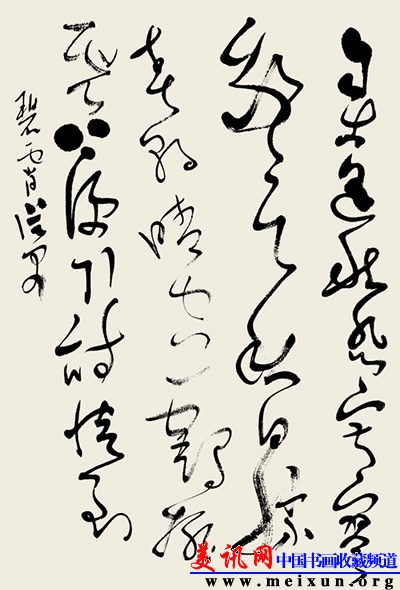 自古逢秋悲寂寥
我言秋日胜
春朝晴空一鹤排
云上便引诗情到
碧霄
美讯网 中国书画收藏频道
www.meixun.org